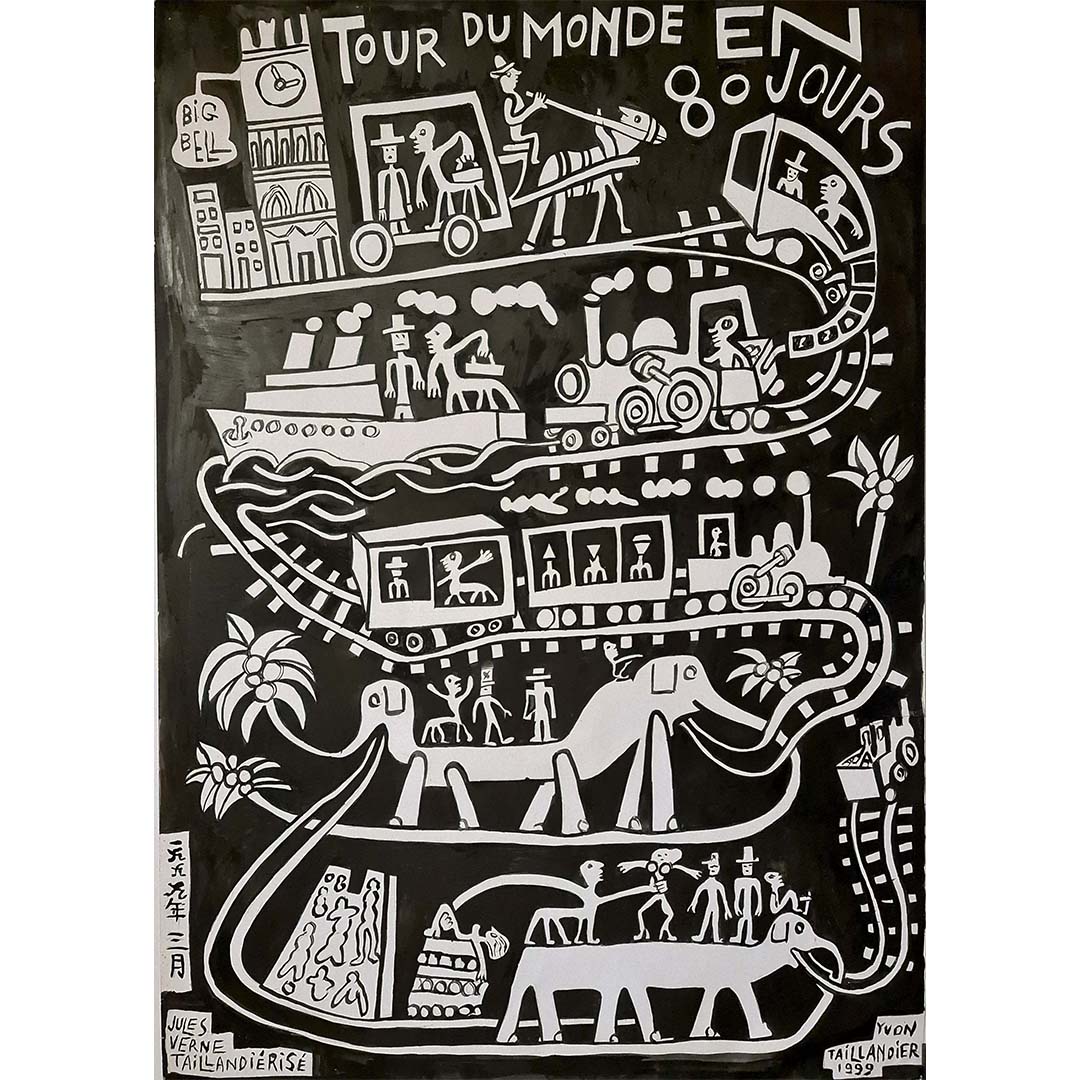 TOUR DU MONDE EN
80 JOURS
BiG
BELL
一九九九年 三月
JULES
VERNE
TAiLLANDIÉRISÉ
YVON
TAiLLANDIER
1999